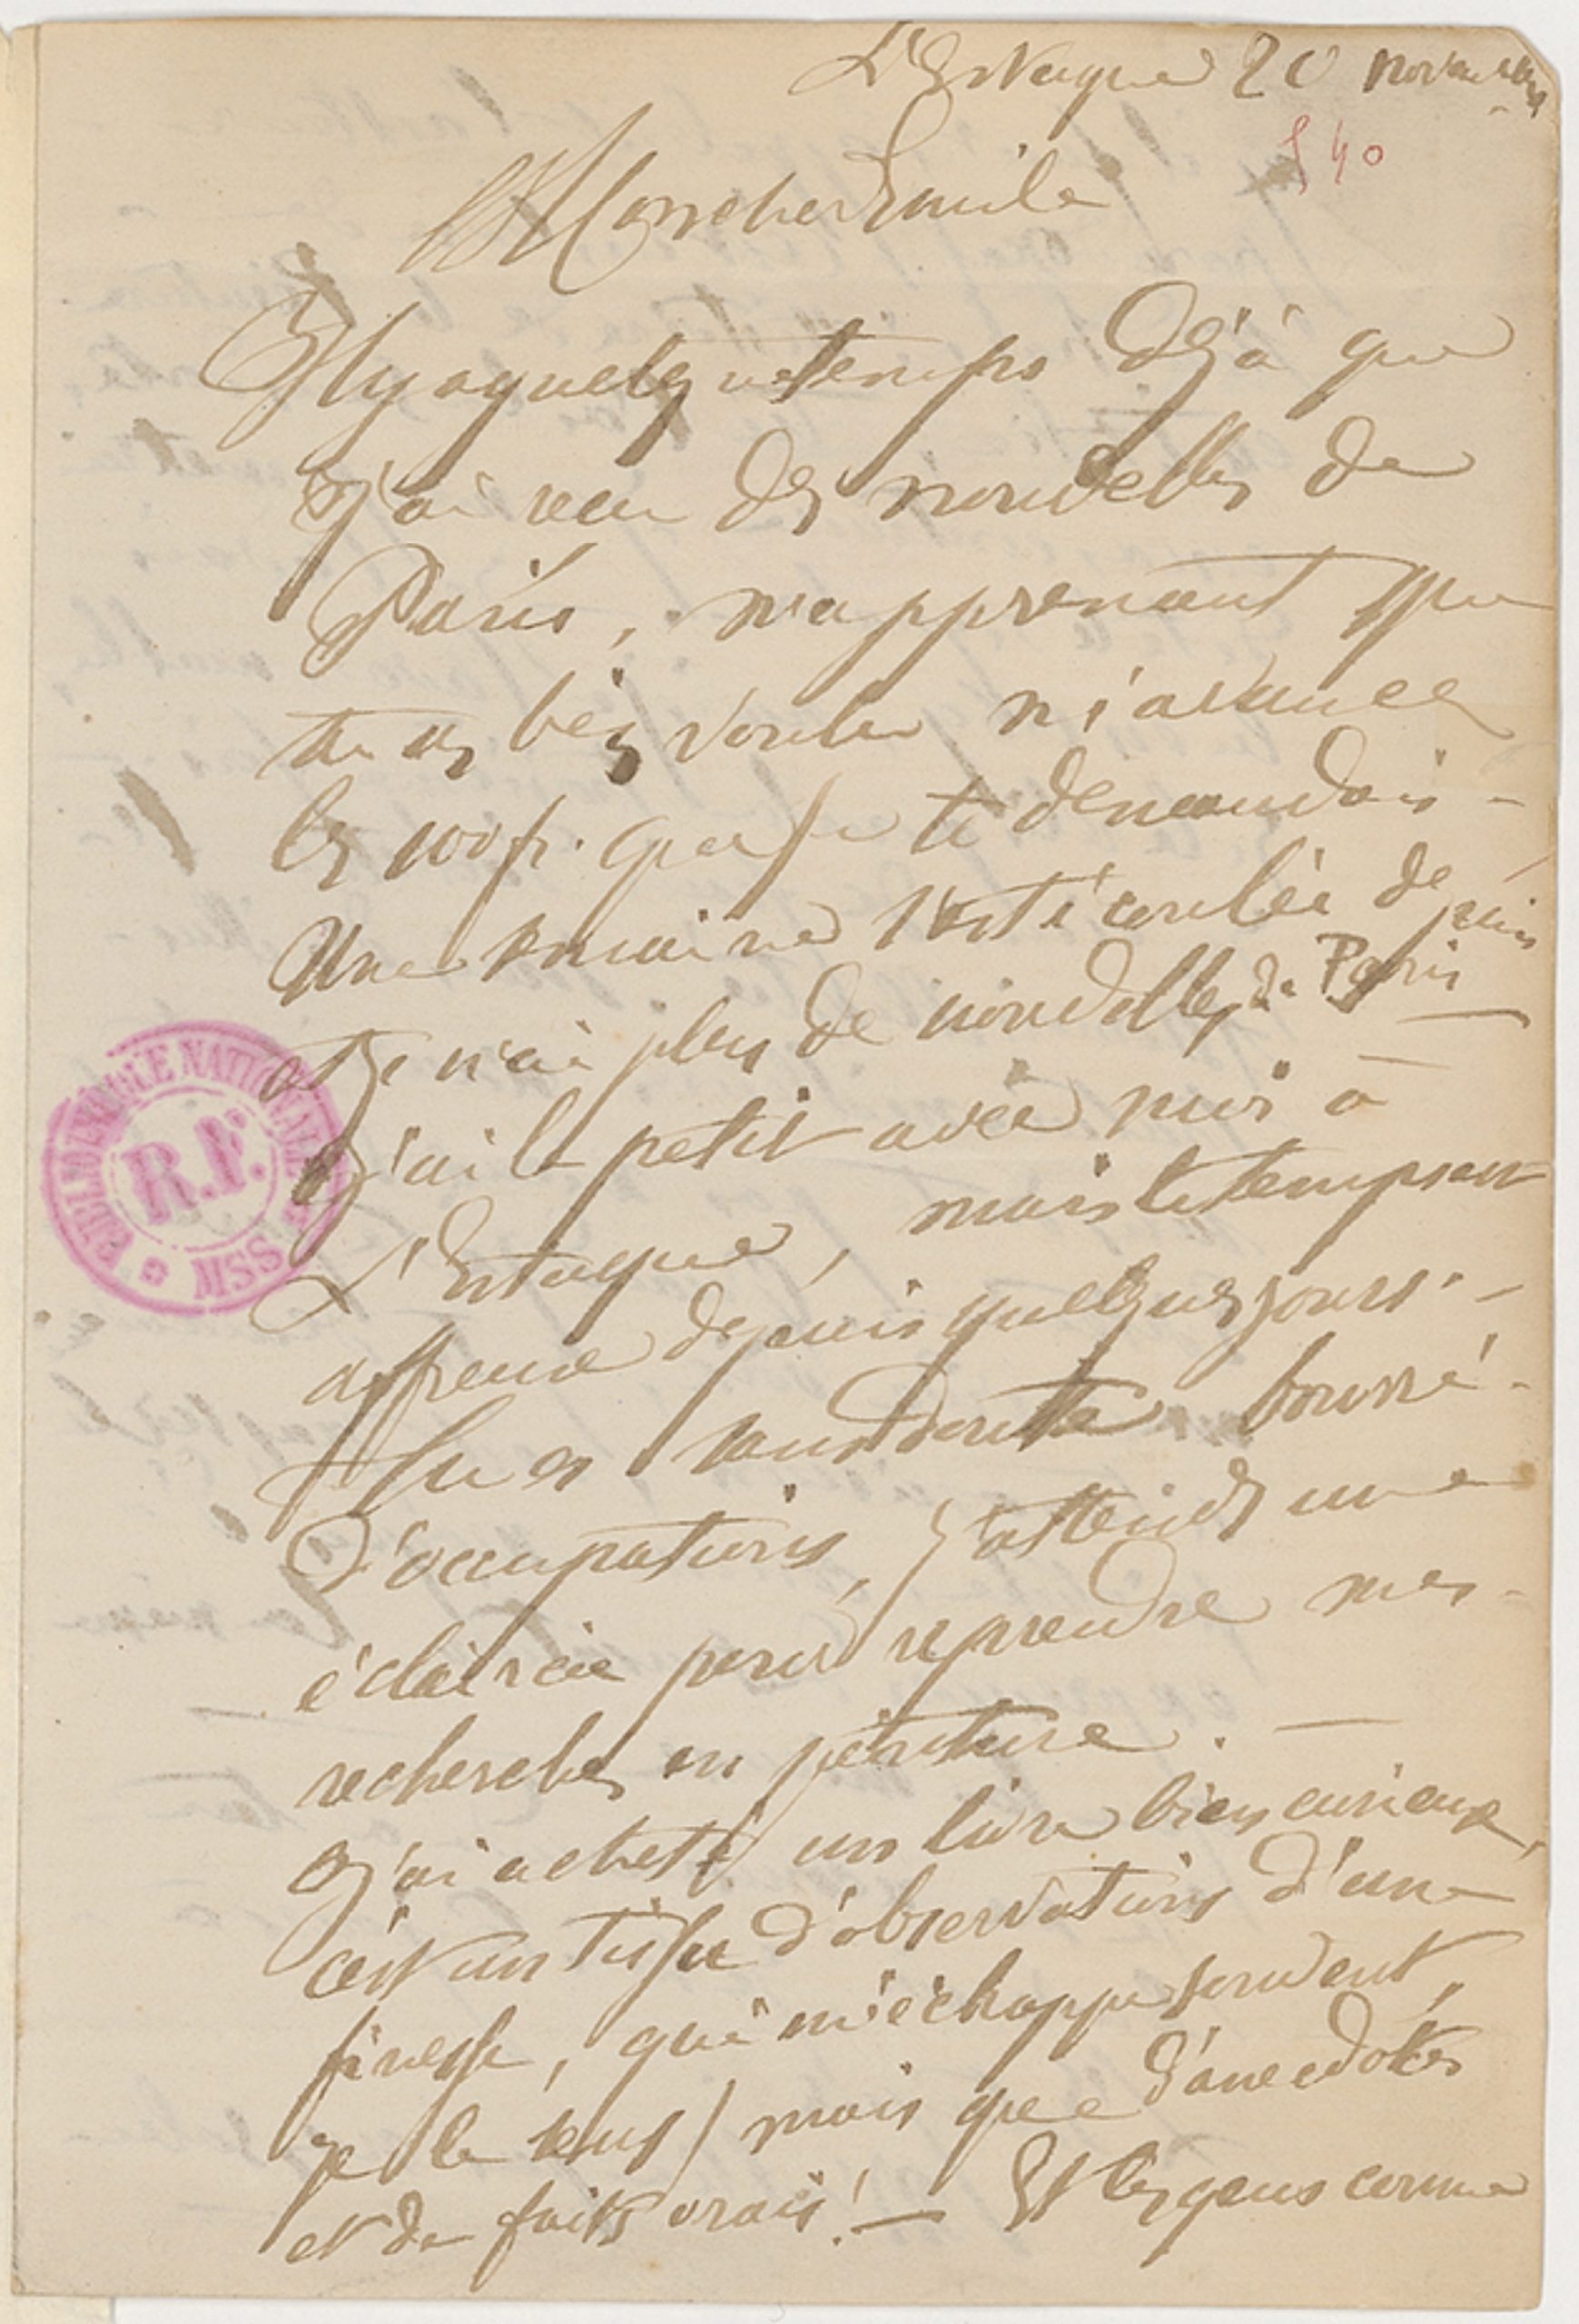 L'Estaque 20 novembre
540
Mon cher Emile
Il y a quelque temps déjà que
j'ai reçu des nouvelles de
Paris, m'apprenant que
tu as bien voulu m'avancer
les 100 fr. que je te demandais -
Une semaine s'est écoulée depuis
et je n'ai plus de nouvelles de Paris
J'ai le petit avec moi à
L'Estaque, mais le temps est
affreux depuis quelques jours. -
Tu es sans doute bourré
d'occupations, j'attends une
éclaircie pour reprendre mes
recherches en peinture. —
J'ai acheté un livre bien curieux,
c'est un tissu d'observations d'une
finesse, qui m'échappe souvent,
je le sens, mais que d'anecdotes
et de faits vrais! — Et les gens comme
BIBLIOTHÈQUE NATIONALE
R.F.
MSS